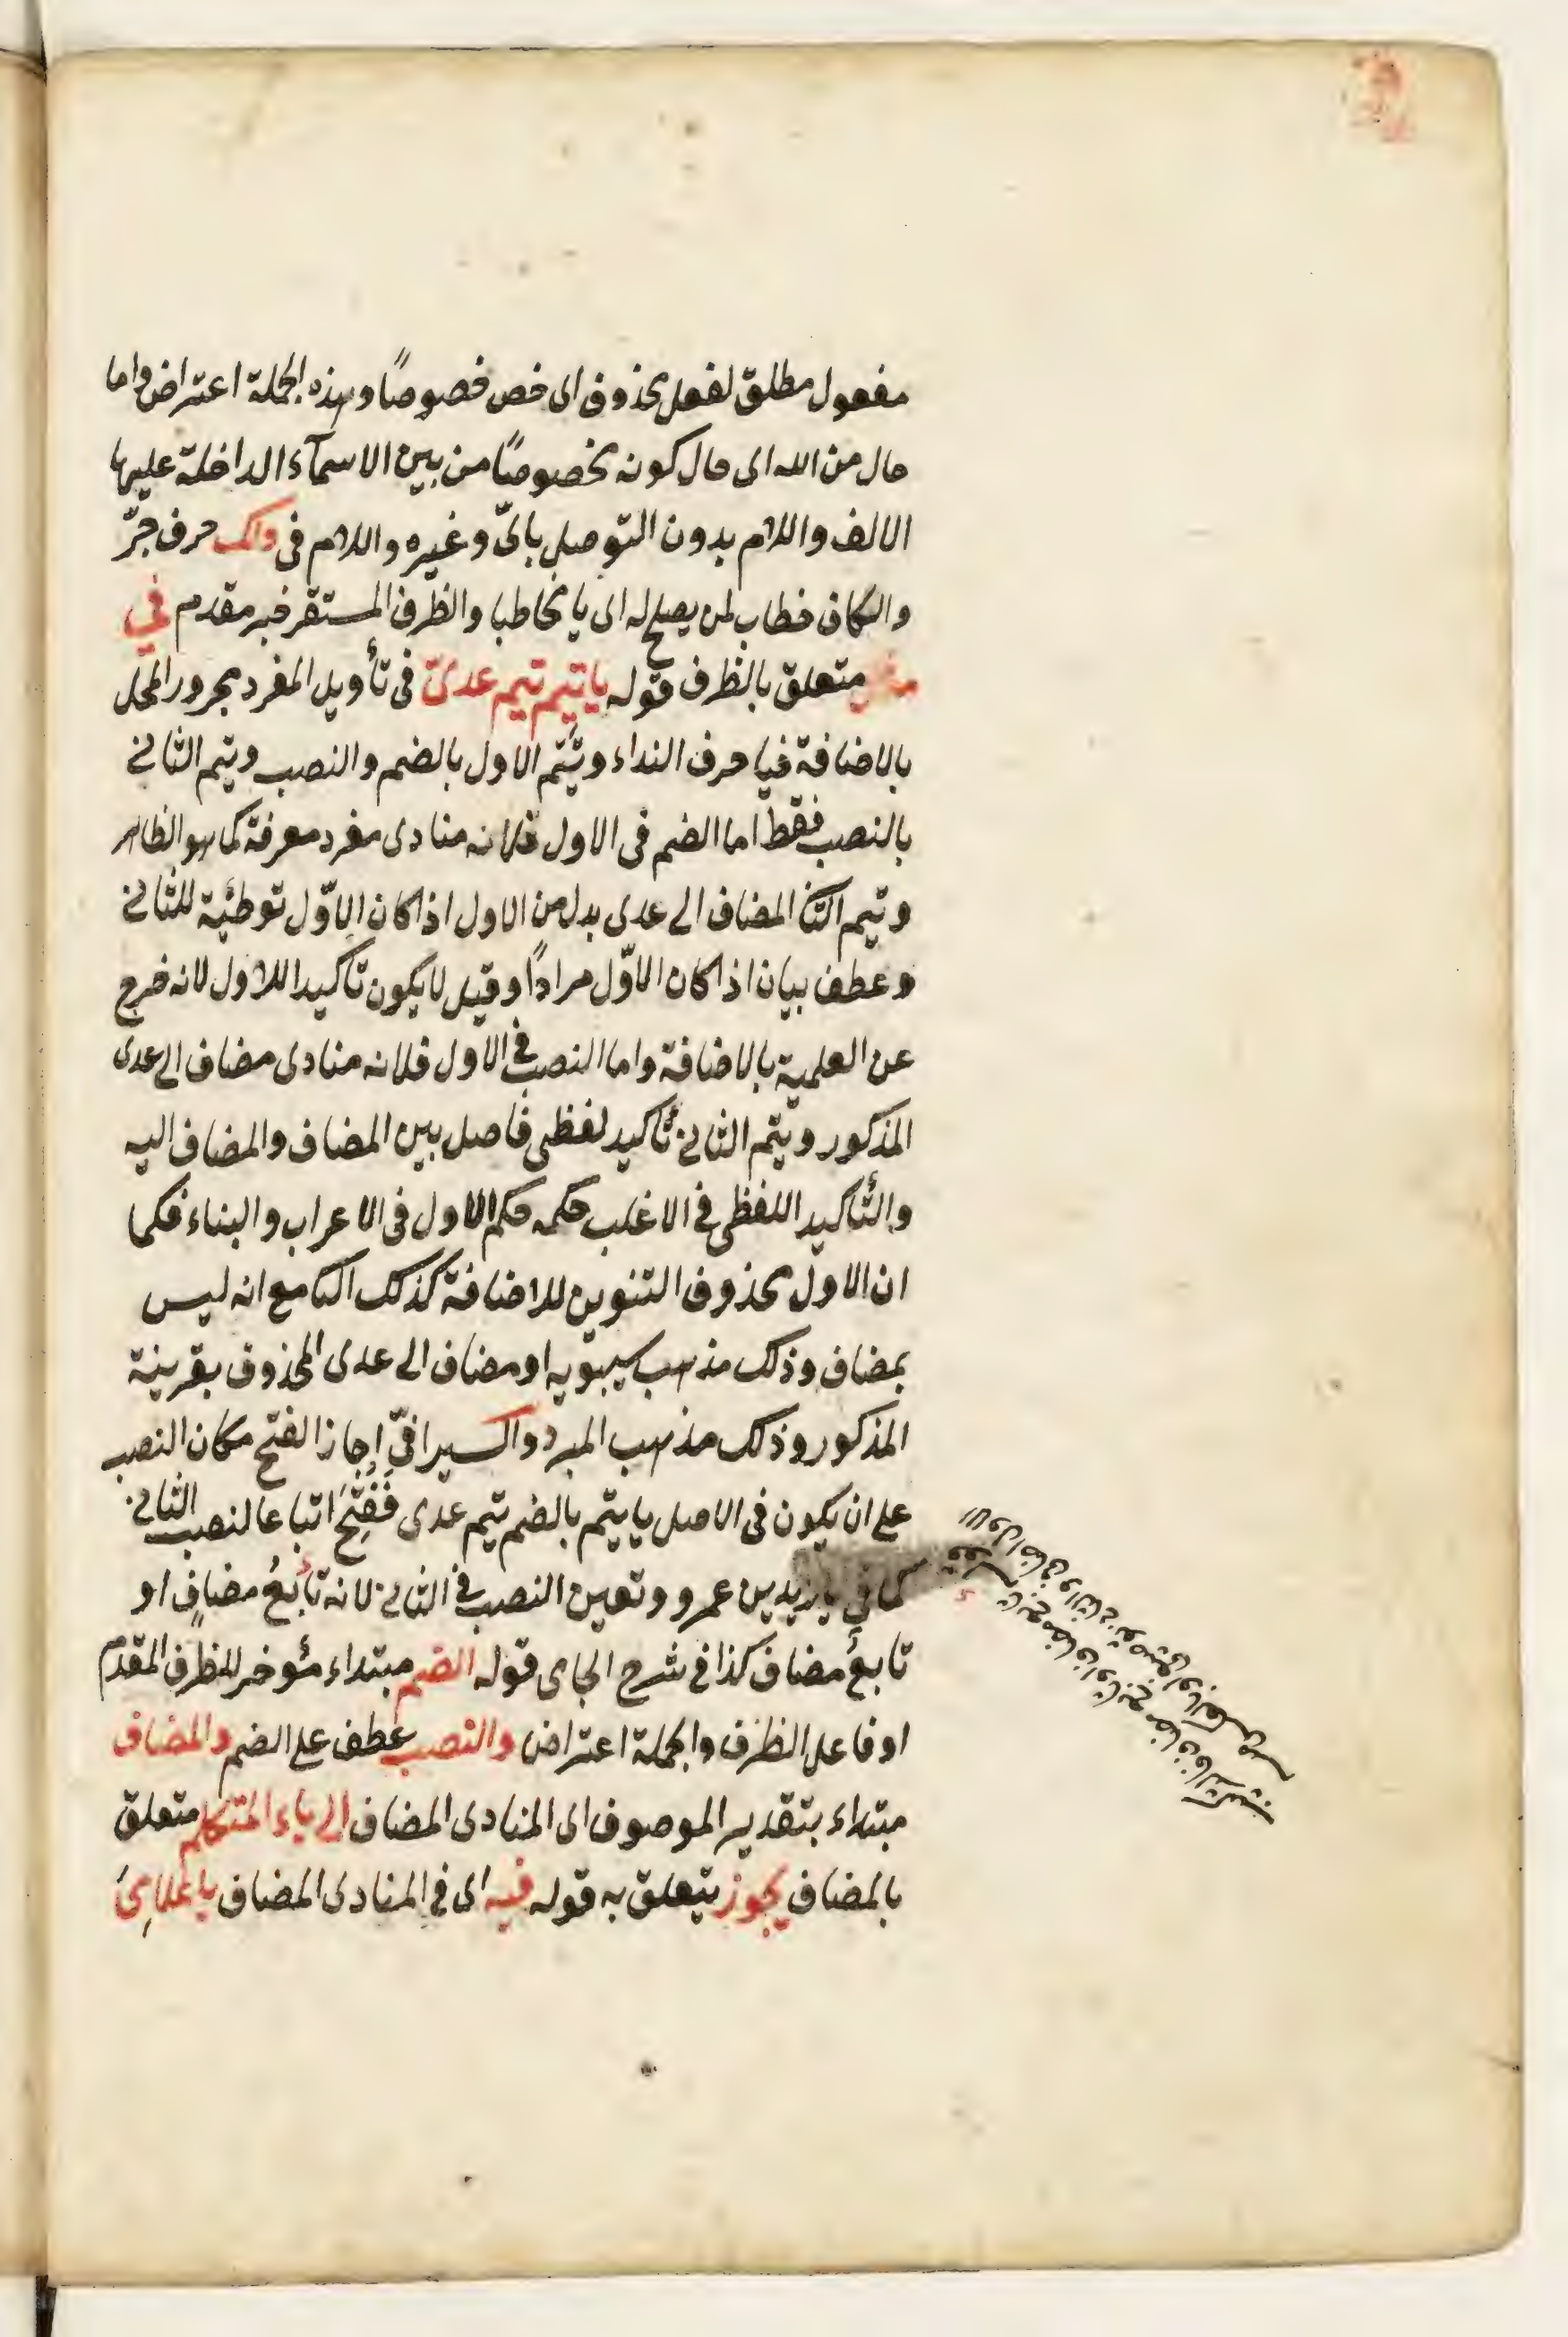 مفعول مطلق لفعل محذوف اى خص خصوصًا وهذه الجملة اعتراض واما
حال من الله اى حال كونه مخصوصًا من بين الاسمآء الداخلة عليها
الالف واللام بدون التوصل باىّ وغيره واللام فى ولك حرف جرّ
والكاف خطاب لمن يصلح له اى يا مخاطبا والظرف المستقر خبر مقدم في
متعلق بالظرف قوله يا تيم تيم عدىّ فى تأويل المفرد مجرور المحل
بالاضافة فيا حرف النداء وتيم الاول بالضم والنصب وتيم الثانى
بالنصب فقط اما الضم فى الاول فلانه منادى مفرد معرفة كما هو الظاهر
وتيم الثانى المضاف الى عدى بدل من الاول اذا كان الاوّل توطئة للثانى
وعطف بيان اذا كان الاوّل مرادًا وقيل لا يكون تاكيدا للاول لانه خرج
عن العلمية بالاضافة واما النصب فى الاول فلانه منادى مضاف الى عدى
المذكور وتيم الثانى تأكيد لفظى فاصل بين المضاف والمضاف اليه
والتأكيد اللفظى فى الاغلب حكمه حكم الاول فى الاعراب والبناء فكما
ان الاول محذوف التنوين للاضافة كذلك الثا مع انه ليس
بمضاف وذلك مذهب سيبويه او مضاف الى عدى المحذوف بقرينة
المذكور وذلك مذهب المبرد والسيرافىّ اجاز الفتح مكان النصب
على ان يكون فى الاصل يا تيم بالضم تيم عدى فَفُتِحَ اتباعا لنصب الثانى
كما فى يا زيد بن عمرو وتعين النصب فى الثانى لانه تابعُ مضافٍ او
تابعُ مضاف كذا فى شرح الجامى قوله الضم مبتداء مؤخر للظرف المقدم
او فاعل الظرف والجملة اعتراض والنصب عطف على الضم والمضاف
مبتداء بتقدير الموصوف اى المنادى المضاف الى ياء المتكلم متعلق
بالمضاف يجوز يتعلق به قوله فيه اى فى المنادى المضاف يا غلامِىَ